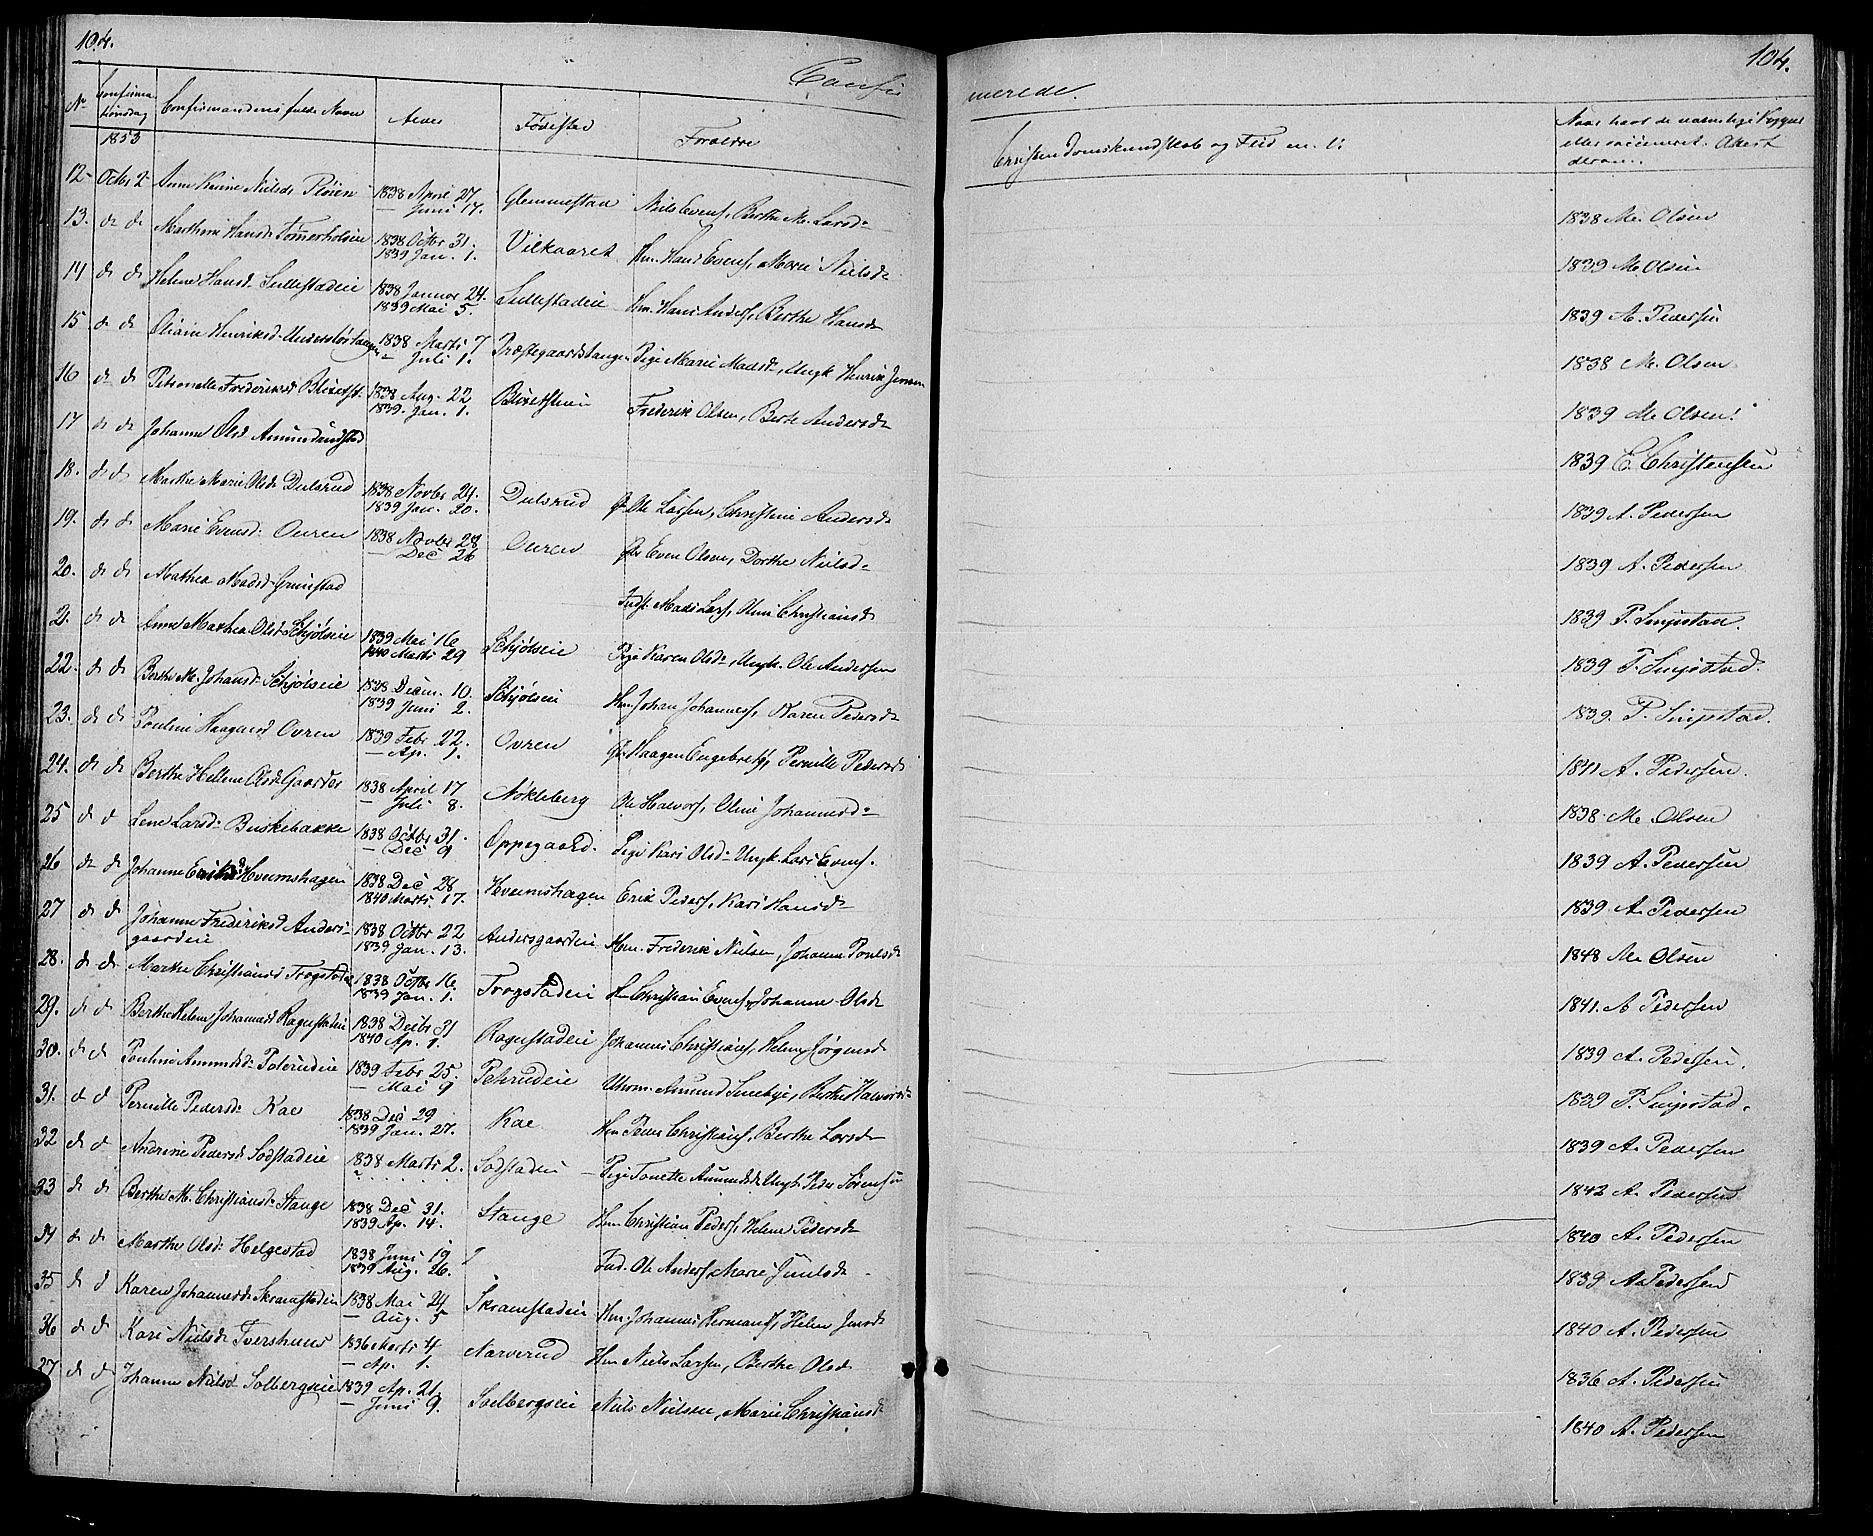 104.
104.
Confir
merede.
No
Confirma
tionsdag
Confirmandens fulde Navn
Alder
Fødested
Forældre
Christendomskundskab og Flid m. v.
Naar havt de naturlige Kopper
eller vaccineret. Attest
derom.
1853
12 Octbr 2 Anne Karine Nielsd. Pløien 1838 April 27 Glemmestad Niels Evens, Berthe M. Larsd. 1838 M. Olsen
— Juni 17.
13. do do Marthine Hansd. Tømmerholseie 1838 Octbr 31. Vilkaaret Hm. Hans Evens, Marie Nielsd. 1839 M. Olsen
1839 Jan. 1.
14 do do Helene Hansd. Sullestadeie 1838 Januar 24. Sullestadeie Hm. Hans Anders, Berthe Hansd. 1839 A. Pedersen
1839 Mai 5.
15 do do Oliane Henriksd. 1838 Marts 7 Præstegaardstangen Pige Marie Madsd., Ungk. Henrik Jensen 1838 M. Olsen
— Juli 1.
16 do do Petronelle Frederiksd. 1838 Aug. 22 Frederik Olsen, Berte Andersd. 1839 M. Olsen
1839. Jan. 1.
17 do do Johanne Olsd. Amundrudstad 1839 C. Christensen
18. do do Marthe Marie Olsd. Dulsrud 1838 Novbr 24. Dulsrud Ole Larsen, Christine Andersd. 1839 A. Pedersen
1839 Jan. 20.
19. do do Marie Evensd. Ovren 1838 Novbr 28 Ovren Even Olsen, Dorthe Nielsd. 1839 A. Pedersen
— Dec 26
20. do do Mathea Madsd. Grimstad Inds. Mads Lars, Oline Christiansd. 1839 P. Smipstad.
21. do do Anne Mathea Olsd. Schjølseie 1839 Mai 16 Schjølseie Pige Karen Olsd., Ungk. Ole Andersen 1839 P. Smipstad.
1840 Marts 29
22. do do Berthe M. Johansd. Schjølseie 1838 Decm. 10. Schjølseie Hm Johan Johannes, Karen Pedersd. 1839. P. Smipstad.
1839 Juni 2.
23. do do Pouline Haagensd. Ovren 1839 Febr 22. Ovren Haagen Engebrets, Pernille Pedersd. 1841 A. Pedersen.
— Ap. 1.
24. do do Berthe Hellene Olsd. Gaarder 1838 April 17 Nøkleberg Ole Halvors, Oline Johannesd. 1838 M. Olsen
— Juli 8.
25 do do Lene Larsd. Buskebakke 1838 Octbr 31. Oppegaard. Pige Kari Olsd. Ungk. Lars Evens. 1839 A. Pedersen
— Dec 9
26 do do Johanne Eriksd. Hveemshagen 1838 Dec 28 Hveemshagen Erik Peders, Kari Hansd. 1839 A. Pedersen
1840 Marts 17.
27 do do Johanne Frederiksd. Anders- 1838 Octbr 22 Andersgaardeie Hm. Frederik Nielsen, Johanne Poulsd. 1848 M. Olsen
gaardeie 1839 Jan. 13.
28. do do Marthe Christiansd. Trogstadeie 1838 Octbr 16 Trogstadeie Hm Christian Evens, Johanne Olsd. 1841. A Pedersen
1839 Jan. 1.
29. do do Berthe Helene Johannesd. Ragustadeie 1838 Decbr 31 Ragustadeie Johannes Christians, Helene Jørgensd. 1839 A. Pedersen.
1840 Ap. 1.
30. do do Pouline Amundsd. Paterudeie 1839 Febr 25. Paterudeie Amund Smebye, Berthe Halvorsd. 1839 P. Smipstad.
— Mai 9
31. do do Pernille Pedersd. Kae 1838 Dec 29 Kae Hm Peder Christians, Berthe Larsd. 1839 A. Pedersen
1839 Jan. 27.
32 do do Andrine Pedersd. Sodstadeie 1838 Marts 2. Sodstadeie Pige Tonette Amundsd. Ungk. Peder Sørensen 1842 A. Pedersen
33 do do Berthe M. Christiansd. Stange 1838 Dec 31. Stange Hm Christian Peders, Helene Pedersd. 1840 A. Pedersen
1839 Ap. 14.
34 do do Marthe Olsd. Helgestad 1838 Juni 19 Ind. Ole Anders, Marie Juulsd. 1839 A. Pedersen
1839 Aug. 26.
35 do do Karen Johannesd. Skramstadeie 1838 Mai 24 Skramstadeie Hm. Johannes Hermans, Helene Jensd. 1840 A. Pedersen
— Aug. 5
36 do do Kari Nielsd. Tvershuus 1836 Marts 4 Narverud Hm Niels Larsen, Berthe Olsd. 1836 A. Pedersen
— Ap. 1.
37 do do Johanne Nielsd. Solbergseie 1839 Ap. 21. Solbergseie Niels Nielsen, Marie Christiansd. 1840 A. Pedersen
— Juni 9.